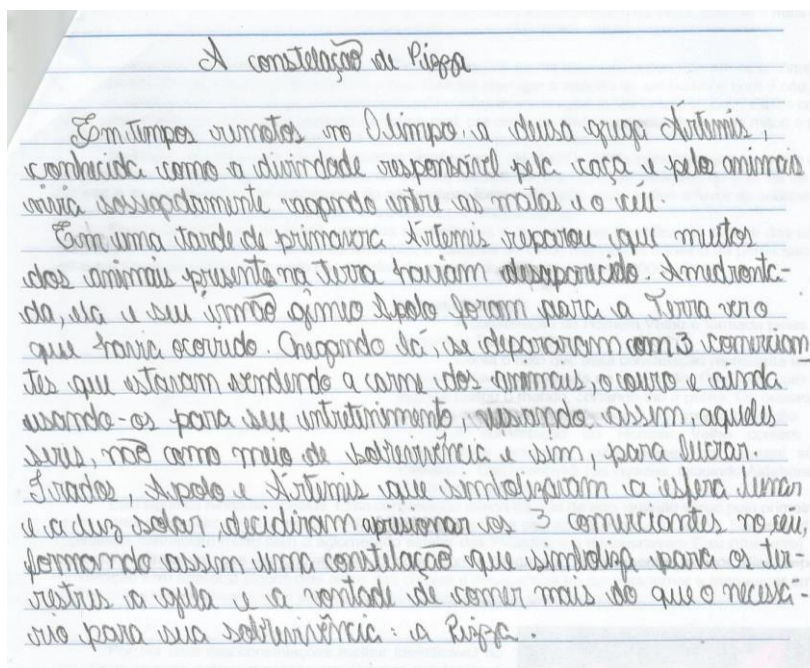 A constelação de Pizza
Em tempos remotos no Olimpo, a deusa grega Ártemis,
conhecida como a divindade responsável pela caça e pelos animais
vivia sossegadamente vagando entre as matas e o céu.
Em uma tarde de primavera Ártemis reparou que muitos
dos animais presente na terra haviam desaparecido. Amedronta-
da, ela e seu irmão gêmeo Apolo foram para a Terra ver o
que havia ocorrido. Chegando lá, se depararam com 3 comercian
tes que estavam vendendo a carne dos animais, o couro e ainda
usando-os para seu entretenimento, usando assim, aqueles
seres, não como meio de sobrevivência e sim, para lucrar.
Irados, Apolo e Ártemis que simbolizaram a esfera lunar
e a luz solar, decidiram aprisionar os 3 comerciantes no céu,
formando assim uma constelação que simboliza para os ter-
restres a gula e a vontade de comer mais do que o necessá-
rio para sua sobrevivência: a Pizza.